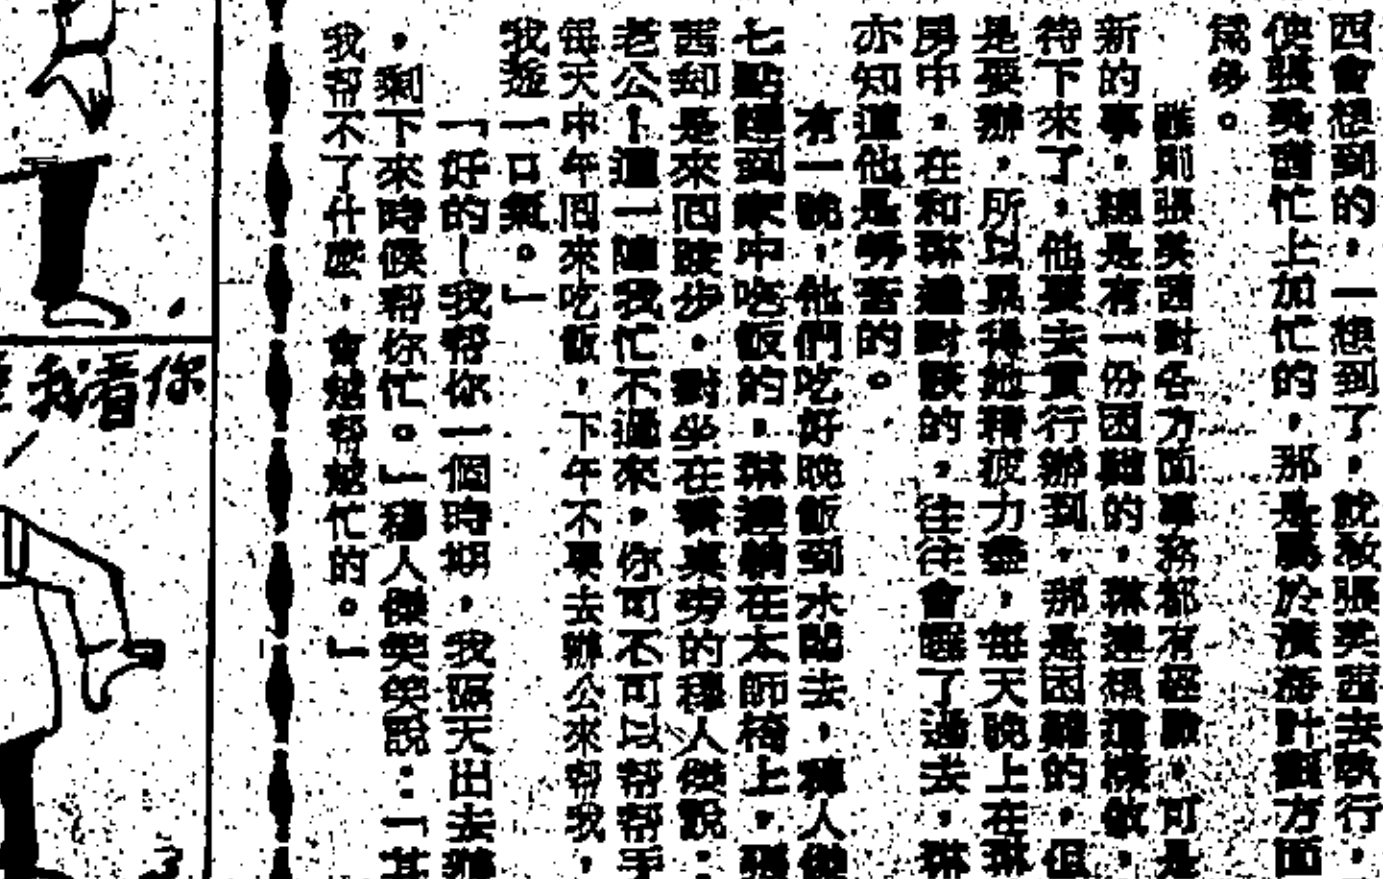 西會想到的，一想到了，就教張英茜去執行，
使張英茜忙上加忙的，那是屬於演務計劃方面
爲多。
雖則張英茜對各方面事務都有經驗，可是
新的事，總是有一份困難的，琳達想這樣做，
待下來了，他要去實行辦到，那是困難的，但
是要辦，所以累得她精疲力盡，每天晚上在琳
房中，在和琳達對談的，往往會睡了過去，琳
亦知道他是勞苦的。
有一晚，他們吃好晚飯到水閣去，穆人傑
七點鐘到家中吃飯的，琳達躺在太師椅上，張
茜却是來回踱步，對坐在書桌旁的穆人傑說：
老公！這一陣我忙不過來，你可不可以帮帮手
每天中午囘來吃飯，下午不要去辦公來帮我，
我透一口氣。」
「好的！我帮你一個時期，我隔天出去辦
，剩下來時候帮你忙。」穆人傑笑笑說：「其
我帮不了什麽，會越帮越忙的。」
我看你